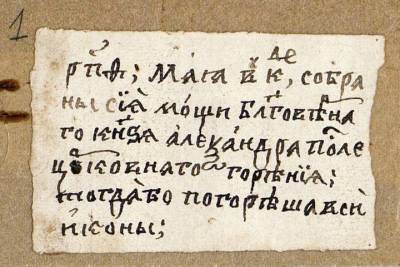 1
рп҃ѳ; маіа в҃ к҃, де собра
ны сїѧ мощи бл҃говѣрна
го кн҃зѧ алеѯандра после
црк҃овнаго згорѣнїѧ;
тогда бо погорѣша всѧ
иконы;